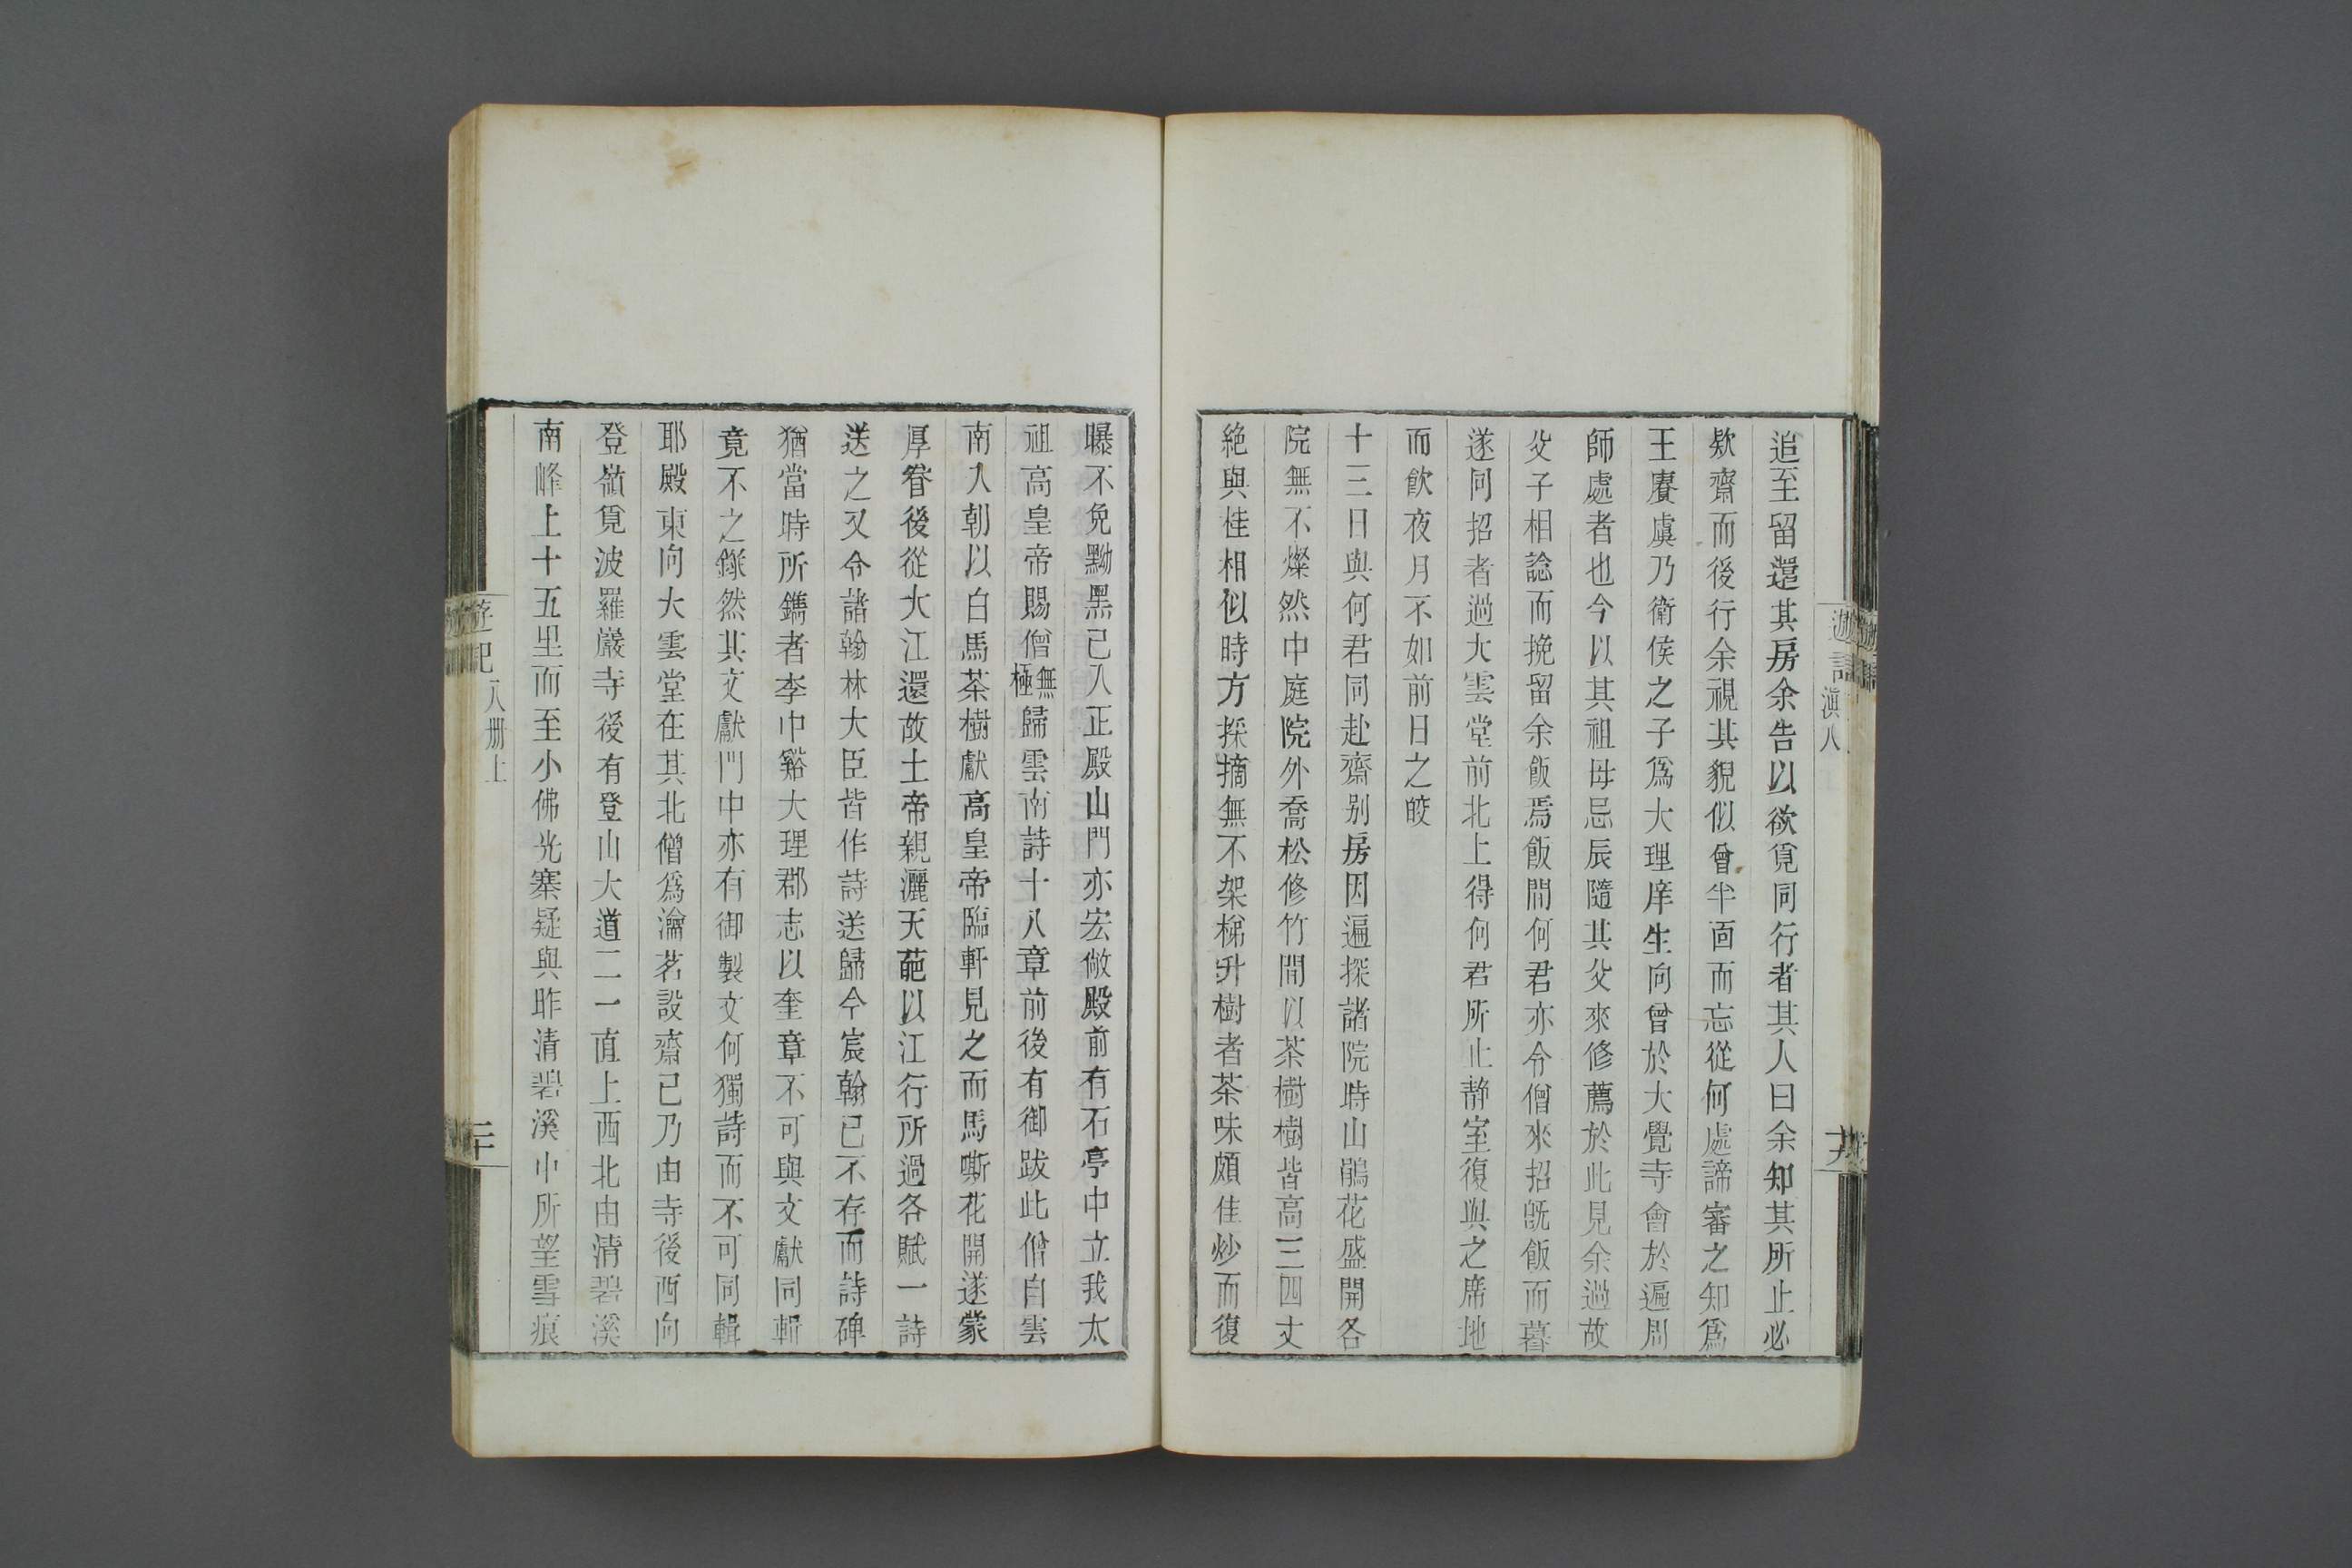 追至留還其房余告以欲覓同行者其人曰余知其所止必
欵齋而後行余視其貌似曾半面而忘從何處諦審之知爲
王賡虞乃衛侯之子爲大理庠生向曾於大覺寺會於遍周
師處者也今以其祖母忌辰隨其父來修薦於此見余過故
父子相諗而挽留余飯焉飯間何君亦令僧來招旣飯而暮
遂同招者過大雲堂前北上得何君所止静室復與之席地
而飲夜月不如前日之皎
十三日與何君同赴齋别房因遍探諸院時山鵑花盛開各
院無不燦然中庭院外喬松修竹間以茶樹樹皆高三四丈
絶與桂相似時方採摘無不架梯升樹者茶味頗佳炒而復
曝不免黝黑已入正殿山門亦宏敞殿前有石亭中立我太
祖高皇帝賜僧無極歸雲南詩十八章前後有御跋此僧自雲
南入朝以白馬茶樹獻高皇帝臨軒見之而馬嘶花開遂蒙
厚眷後從大江還故土帝親灑天葩以江行所過各賦一詩
送之又令諸翰林大臣皆作詩送歸今宸翰已不存而詩碑
猶當時所鐫者李中谿大理郡志以奎章不可與文獻同輯
竟不之錄然其文獻門中亦有御製文何獨詩而不可同輯
耶殿東向大雲堂在其北僧爲瀹茗設齋已乃由寺後西向
登嶺覓波羅巖寺後有登山大道二一直上西北由清碧溪
南峰上十五里而至小佛光寨疑與昨清碧溪中所望雪痕
遊記
滇八
八册上